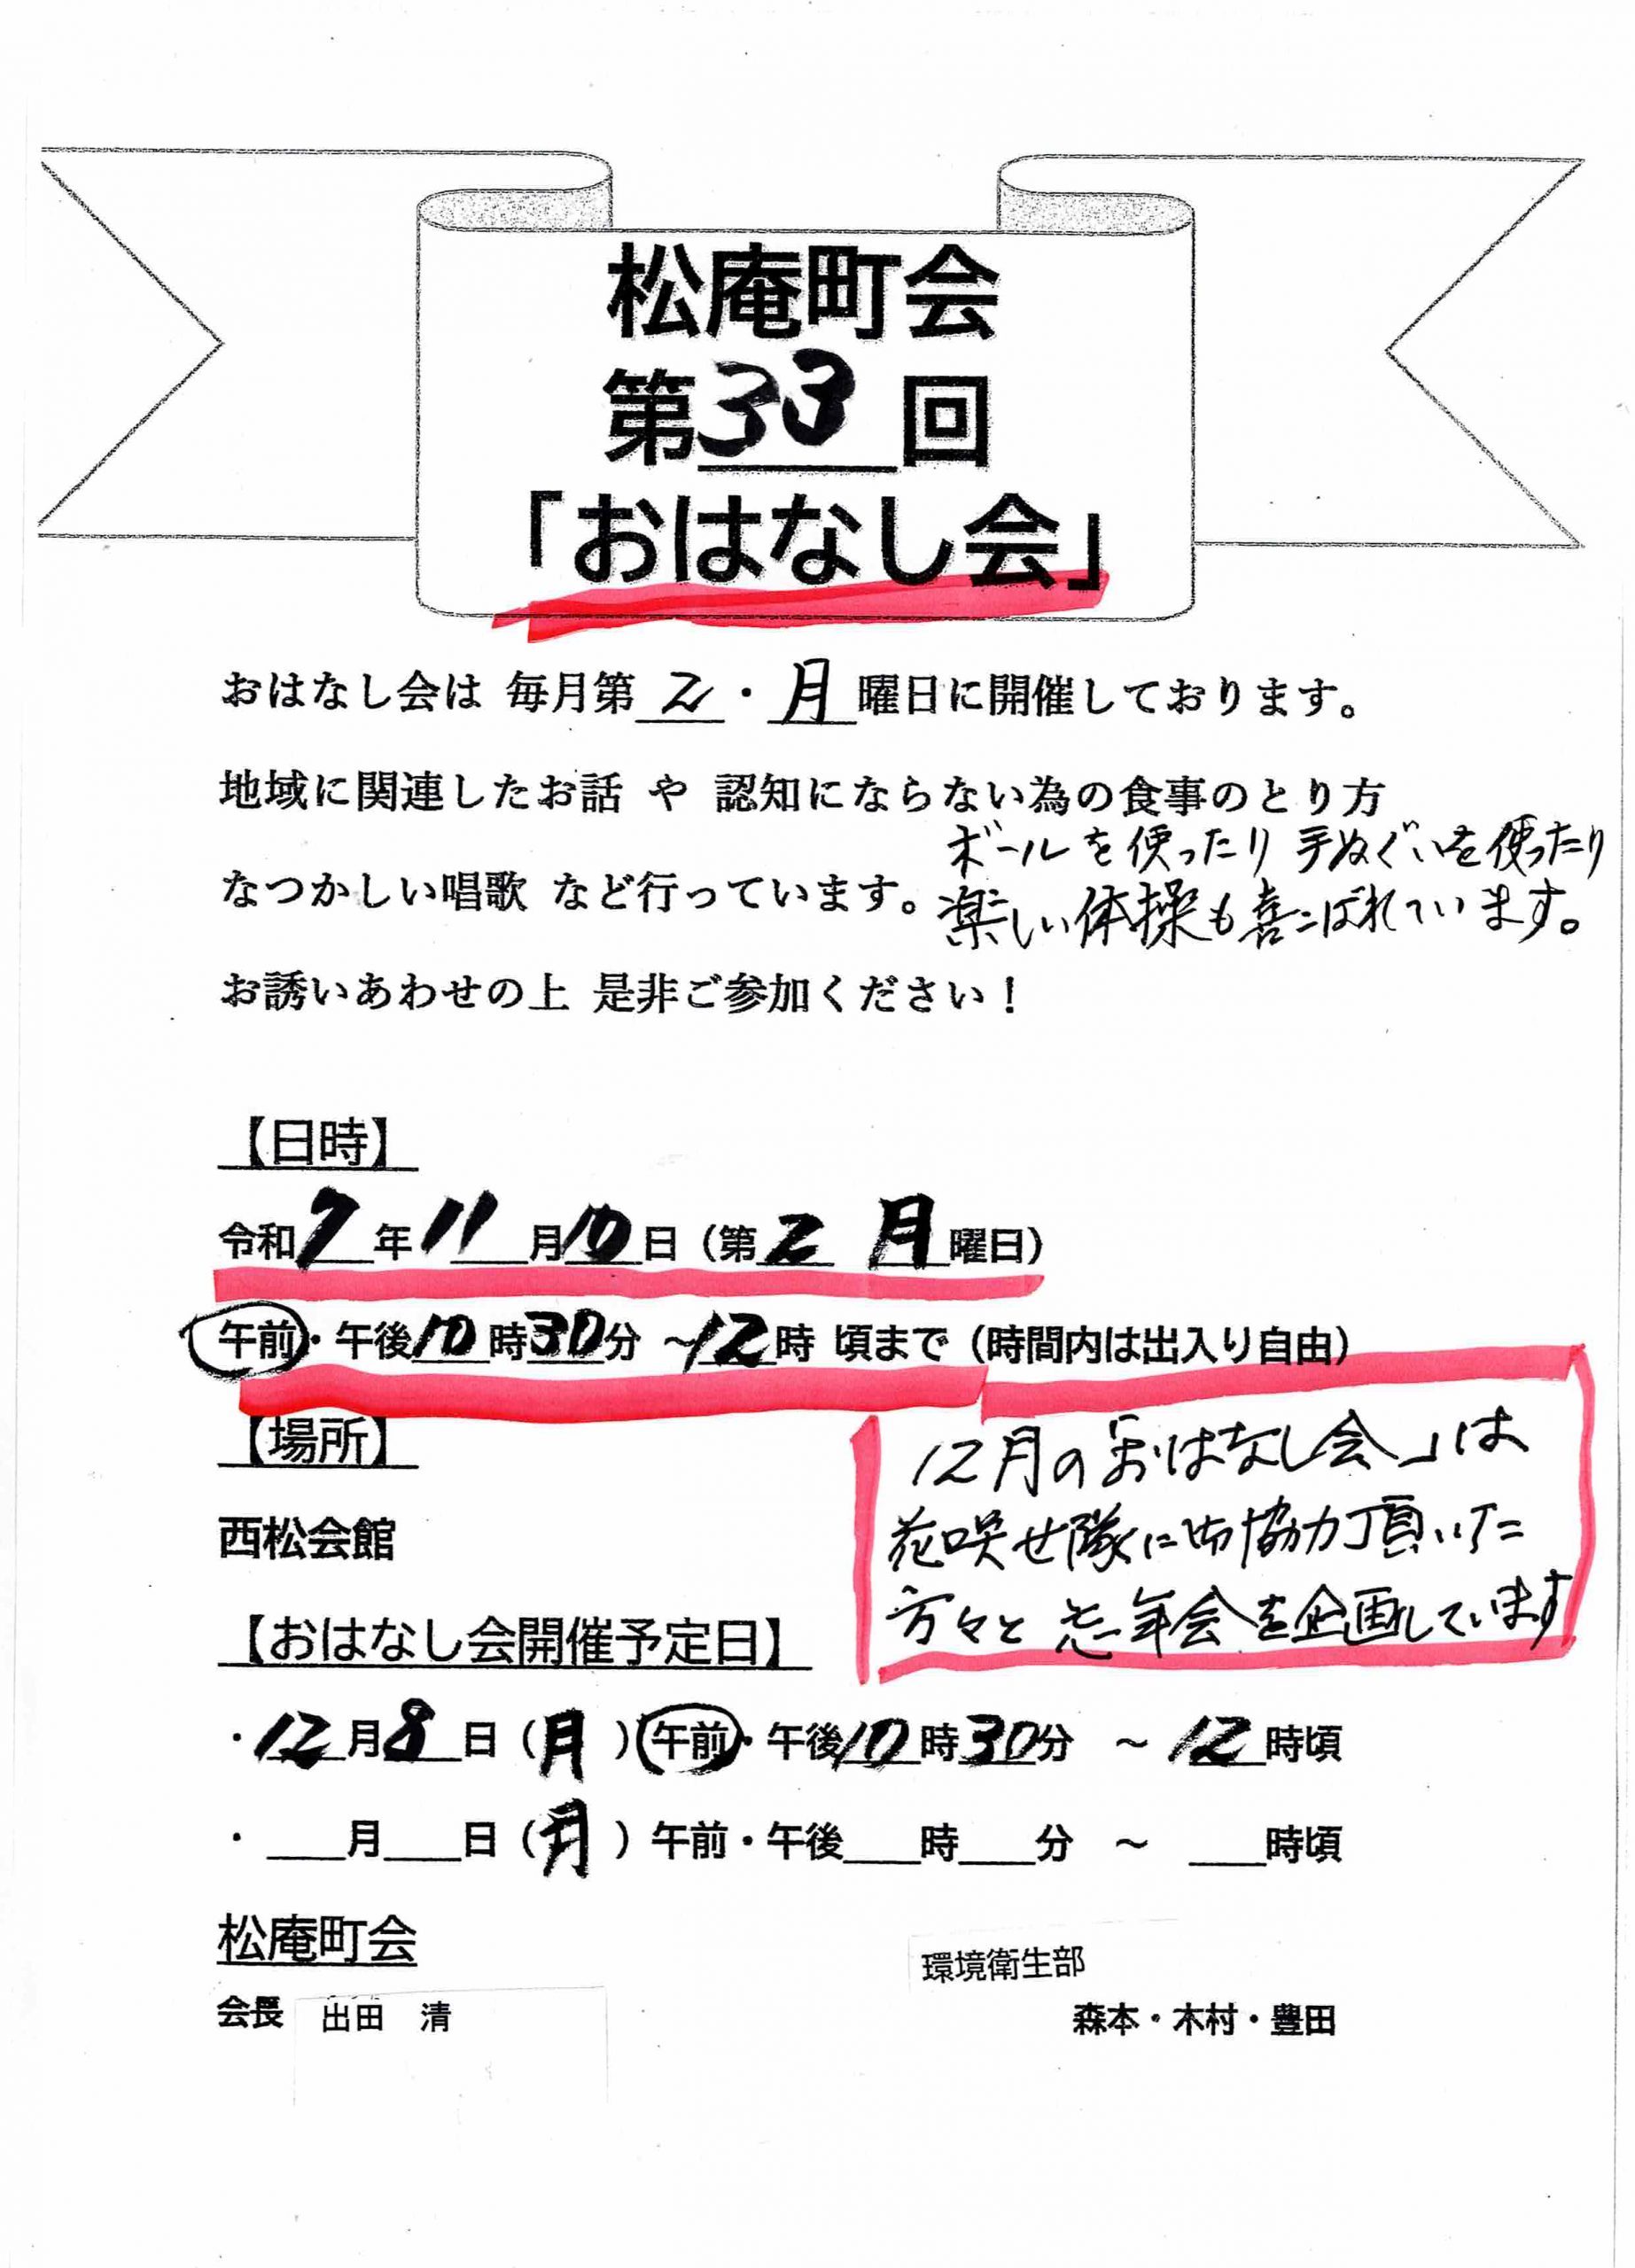 松庵町会
第33回
「おはなし会」
おはなし会は 毎月第2・月曜日に開催しております。
地域に関連したお話 や 認知にならない為の食事のとり方
なつかしい唱歌 など行っています。
ボールを使ったり 手ぬぐいを使ったり
楽しい体操も喜こばれています。
お誘いあわせの上 是非ご参加ください！
【日時】
令和7年11月10日（第2 月曜日）
午前・午後10時30分 ～12時 頃まで（時間内は出入り自由）
【場所】
西松会館
12月の「おはなし会」は
花咲せ隊に御協力頂いた
方々と 忘年会を企画しています
【おはなし会開催予定日】
・12月8日（月）午前・午後10時30分 ～ 12時頃
・ 月 日（月）午前・午後 時 分 ～ 時頃
松庵町会
会長 出田 清
環境衛生部
森本・木村・豊田